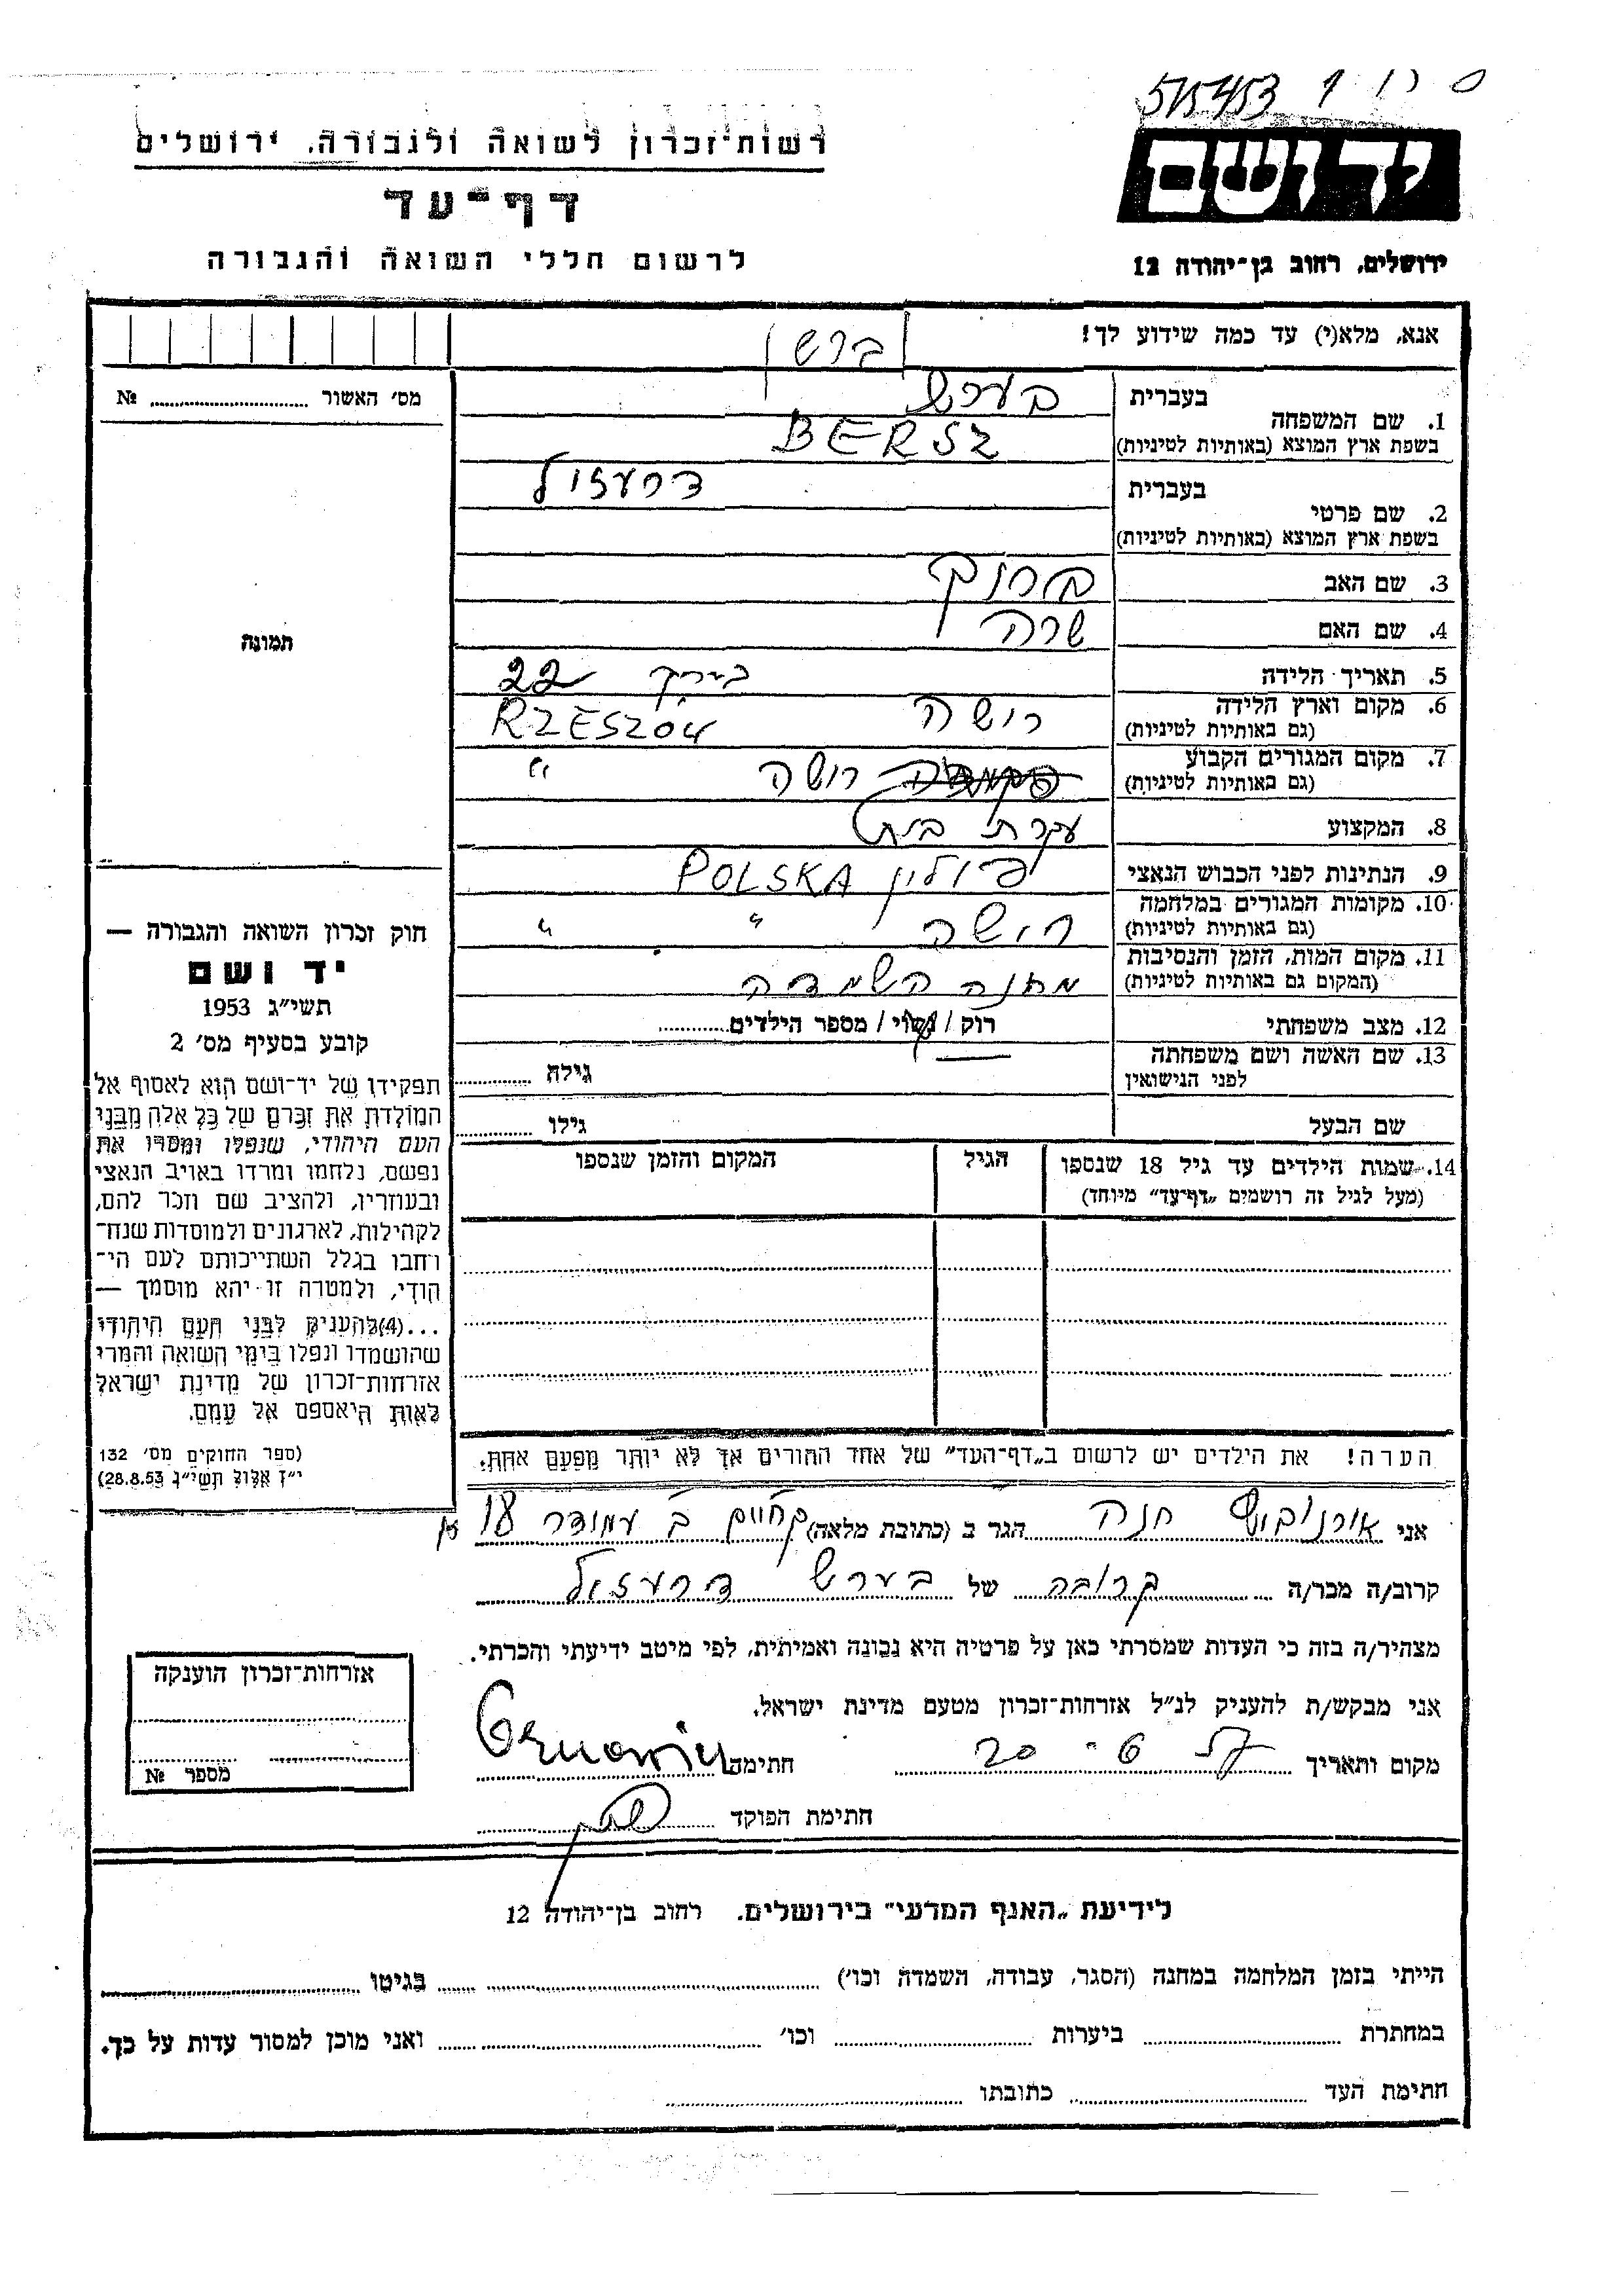 515453
רשות-זכרון לשואה ולגבורה, ירושלים
יד ושם
דף-עד
לרשום חללי השואה והגבורה
ירושלים, רחוב בן-יהודה 12
אנא, מלא(י) עד כמה שידוע לך!
ברש
מס׳ האשור № ..........
בעברית
בערש
1. שם המשפחה
בשפת ארץ המוצא (באותיות לטיניות)
BERSZ
בעברית
דרעזול
2. שם פרטי
בשפת ארץ המוצא (באותיות לטיניות)
3. שם האב
ברוך
4. שם האם
שרה
תמונה
5. תאריך הלידה
בערך 22
6. מקום וארץ הלידה
(גם באותיות לטיניות)
רישה RZESZOW
7. מקום המגורים הקבוע
(גם באותיות לטיניות)
רישה "
8. המקצוע
עקרת בית
9. הנתינות לפני הכבוש הנאצי
פולין POLSKA
10. מקומות המגורים במלחמה
(גם באותיות לטיניות)
רישה " "
11. מקום המות, הזמן והנסיבות
(המקום גם באותיות לטיניות)
מחנה השמדה
12. מצב משפחתי
רוק / נשוי / מספר הילדים..........
13. שם האשה ושם משפחתה
לפני הנישואין
גילה ..........
שם הבעל
גילו ..........
14. שמות הילדים עד גיל 18 שנספו
(מעל לגיל זה רושמים „דף-עד” מיוחד)
הגיל
המקום והזמן שנספו
חוק זכרון השואה והגבורה —
יד ושם
תשי״ג 1953
קובע בסעיף מס׳ 2
תפקידו של יד-ושם הוא לאסוף אל
המולדת את זכרם של כל אלה מבני
העם היהודי, שנפלו ומסרו את
נפשם, נלחמו ומרדו באויב הנאצי
ובעוזריו, ולהציב שם וזכר להם,
לקהילות, לארגונים ולמוסדות שנח-
רבו בגלל השתייכותם לעם הי-
הודי, ולמטרה זו יהא מוסמך —
...(4) להעניק לבני העם היהודי
שהושמדו ונפלו בימי השואה והמרי
אזרחות-זכרון של מדינת ישראל
לאות היאספם אל עמם.
(ספר החוקים מס׳ 132
י״ז אלול תשי״ג 28.8.53)
הערה! את הילדים יש לרשום ב„דף-העד” של אחד ההורים אך לא יותר מפעם אחת.
אני חנה הגר ב (כתובת מלאה)
קרוב/ה מכר/ה קרובה של בערש דרעזול
מצהיר/ה בזה כי העדות שמסרתי כאן על פרטיה היא נכונה ואמיתית, לפי מיטב ידיעתי והכרתי.
אני מבקש/ת להעניק לנ״ל אזרחות-זכרון מטעם מדינת ישראל.
מקום ותאריך חתימה
חתימת הפוקד
אזרחות-זכרון הוענקה
מספר №
לידיעת „האגף המדעי” בירושלים, רחוב בן-יהודה 12
הייתי בזמן המלחמה במחנה (הסגר, עבודה, השמדה וכו׳) .......... בגיטו ..........
במחתרת .......... ביערות .......... וכו׳ .......... ואני מוכן למסור עדות על כך.
חתימת העד .......... כתובתו ..........